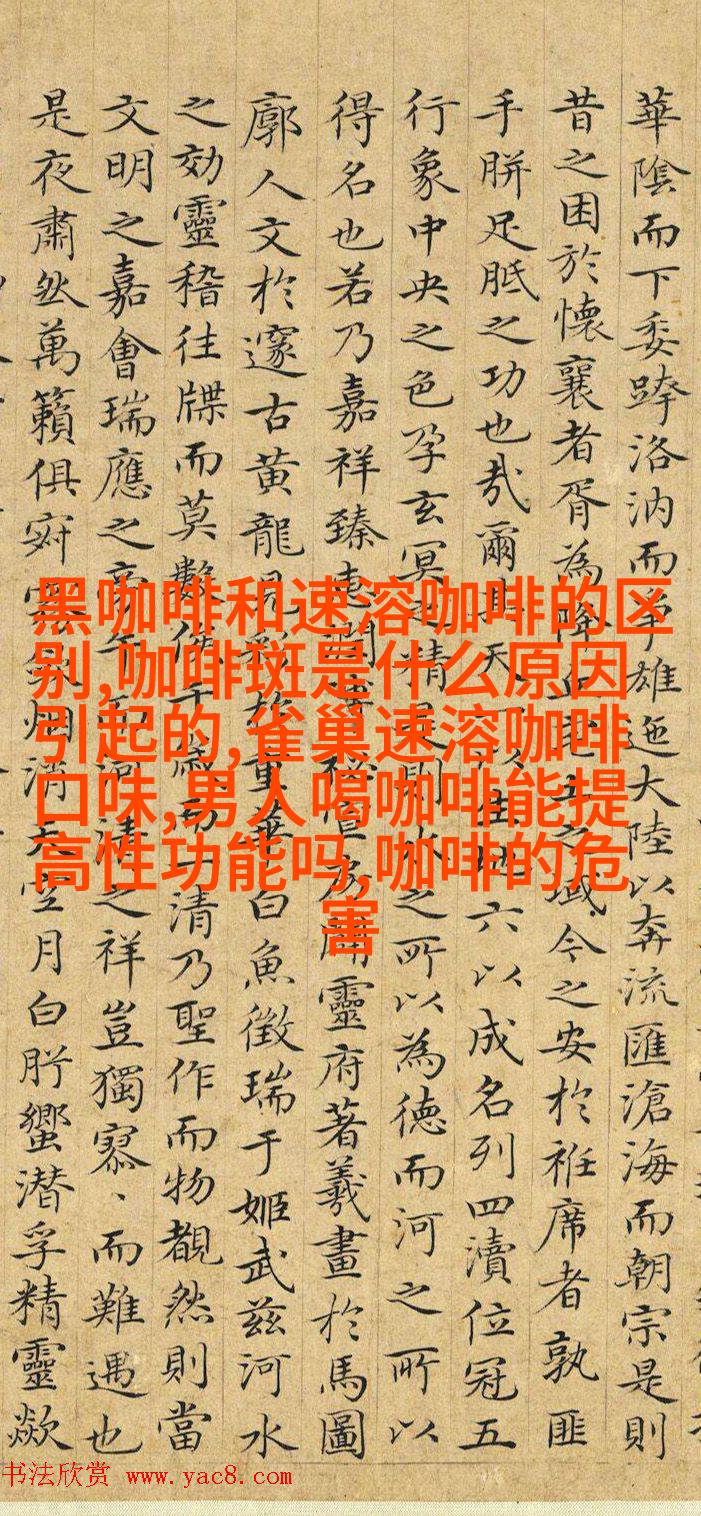 華陰而下委跨洛汭而爭雄迤大陸以奔流匯滄海而朝宗是則
昔之困於懷襄者胥為降丘宅土之域今之安於袵席者孰匪
手胼足胝之功也哉爾其天一以生地六以成名列四瀆位冠五
行象中央之色孕玄冥之精是則水之所以為德而河之所以
得名也若乃嘉祥臻靈府著羲畫於馬圖
廓人文於邃古黃龍見彩於重華白魚徵瑞于姬武茲河水
之効靈稽往牒而莫數俟千歲而一清乃聖作而物覩然則當
文明之嘉會瑞應之河清之祥豈獨寡、而難遇也
是夜肅然萬籟俱寂雲斂烟消天空月白肸蠁潛孚精靈歘
黑咖啡和速溶咖啡的区
别,咖啡斑是什么原因
引起的,雀巢速溶咖啡
口味,男人喝咖啡能提
高性功能吗,咖啡的危
害
书法欣赏 www.yac8.com